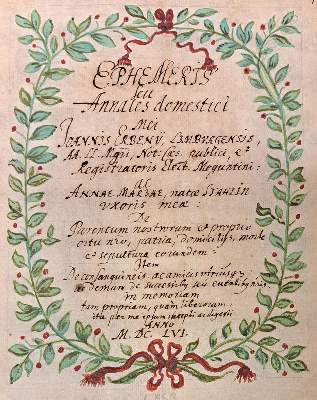 EPHEMERIS
seu
Annales domestici
Mei
IOANNIS ERBENII, LIMBURGENSIS,
AA. LL. Mgri, Not: Cæs. publici, et
Registratoris Elect. Moguntini:
ac
ANNÆ MARIÆ, natæ STÄHLIN
uxoris meæ:
De
Parentum nostrorum et proprio
ortu nro, patria, domicilijs, morte
et sepultura eorundem:
Item
De consanguineis ac amicis utriusq
ac demum de successib, seu
in memoriam
tam propriam, quam liberorum
ita per me ipsum
ANNO
M. DC. LVI.